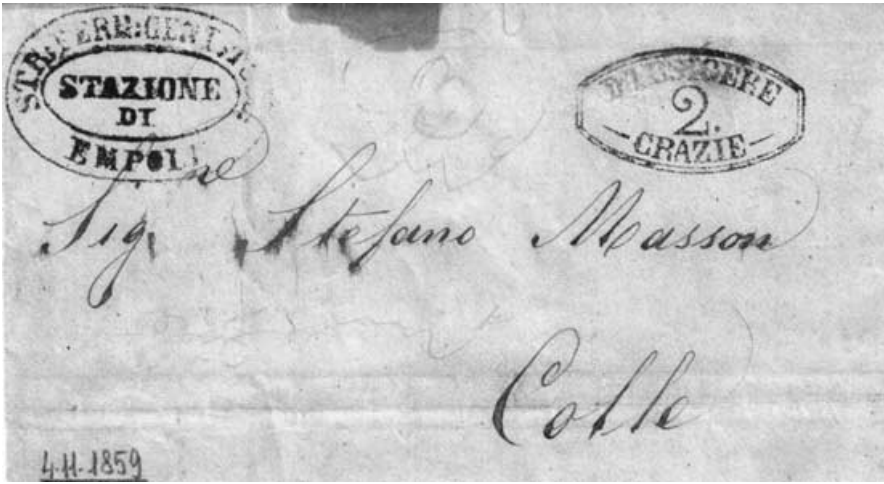 STR: FERR: CENT:
STAZIONE
DI
EMPOLI
DA ESIGERE
2.
CRAZIE
Sig. Stefano Masson
Colle
4-11-1859